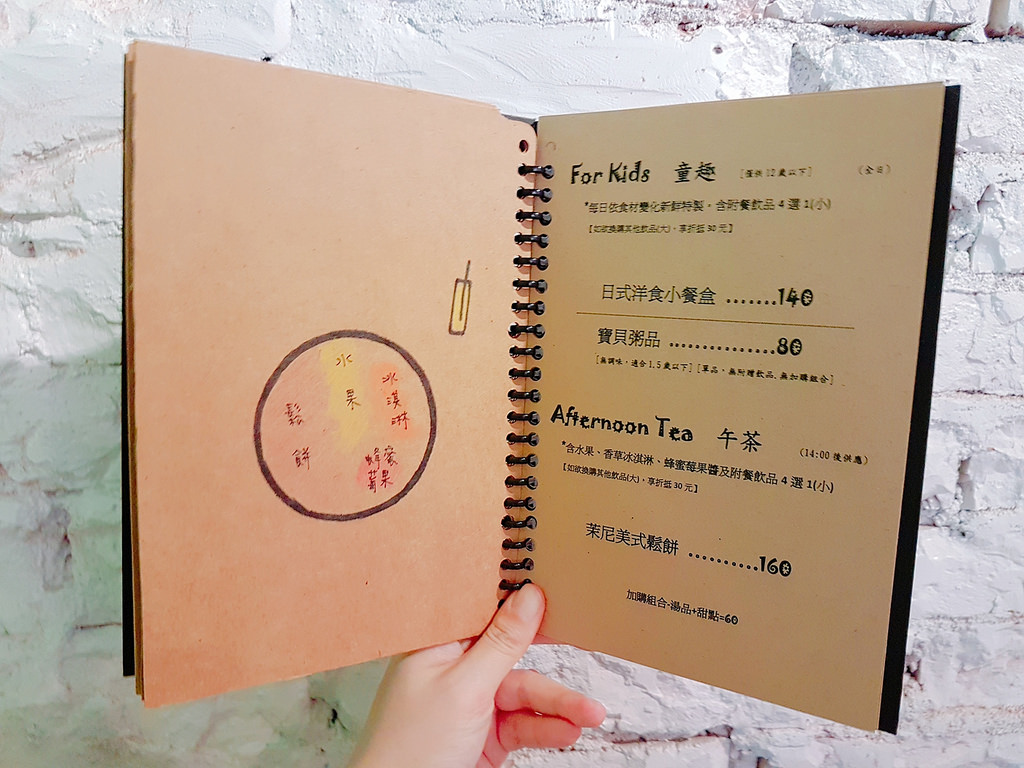 水果
冰淇淋
鬆餅
蜂蜜
莓果
For Kids 童趣 [僅供12歲以下] (全日)
*每日依食材變化新鮮特製，含附餐飲品4選1(小)
【如欲換購其他飲品(大)，享折抵30元】
日式洋食小餐盒 .......140元
寶貝粥品 ...............80元
[無調味，適合1.5歲以下] [單品，無附贈飲品、無加購組合]
Afternoon Tea 午茶 (14:00後供應)
*含水果、香草冰淇淋、蜂蜜莓果醬及附餐飲品4選1(小)
【如欲換購其他飲品(大)，享折抵30元】
茉尼美式鬆餅 ..........160元
加購組合-湯品+甜點=60